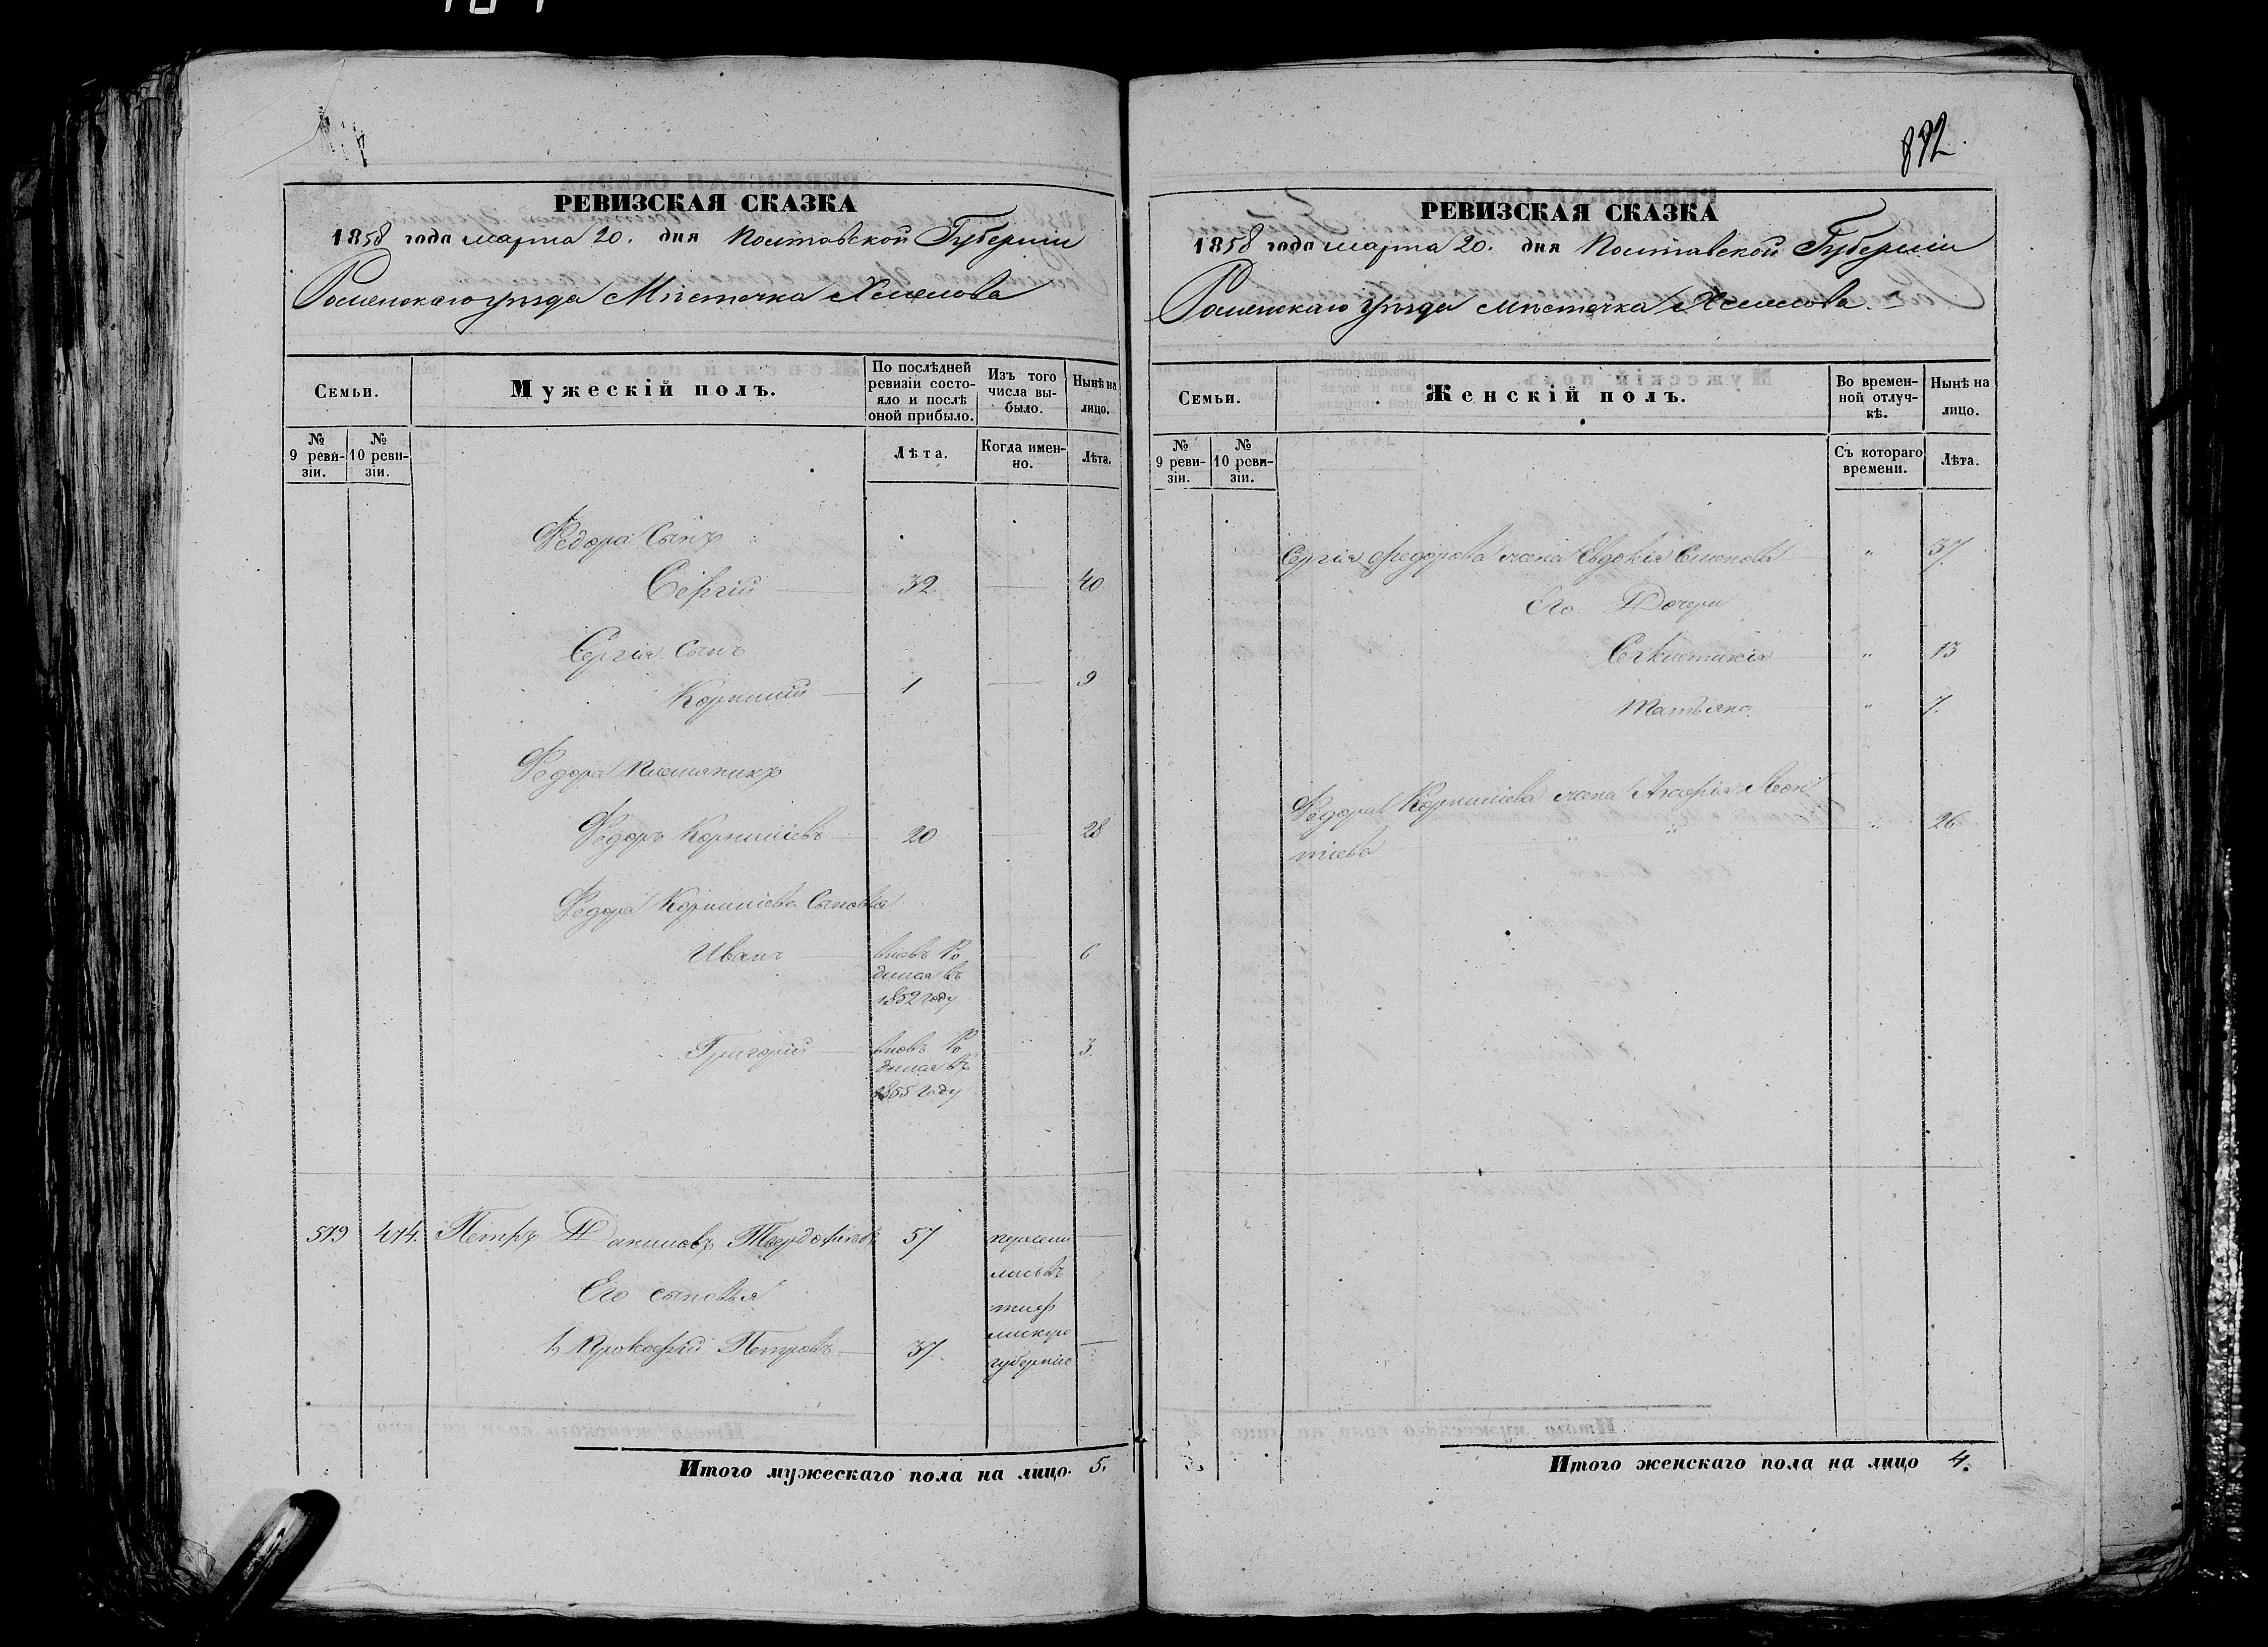 РЕВИЗСКАЯ СКАЗКА
1858 года марта 20. дня Полтавской Губерніи
Роменскаго уѣзда Мѣстечка Хмелова
Семьи.
Мужескій полъ.
По послѣдней ревизіи состояло и послѣ оной прибыло.
Изъ того числа выбыло.
Нынѣ на лицо.
№ 9 ревизіи.
№ 10 ревизіи.
Лѣта.
Когда именно.
Лѣта.
Федора Сынъ
Сергій 32 40
Сергія Сынъ
Корнилій 1 9
Федора племяникъ
Федоръ Корниліевъ 20 28
Федора Корниліева Сыновья
Иванъ
вновь Ро
дился въ
1852 году
6
Григорій
вновь Ро
дился въ
1855 году
3.
579 474. Петръ Даниловъ 57
Его сыновья
1, Прокофій Петровъ 37.
лись въ
тиф
лискую
губернію
Итого мужескаго пола на лицо. 5.
892.
РЕВИЗСКАЯ СКАЗКА
1858 года марта 20. дня Полтавской Губерніи
Роменскаго уѣзда мѣстечка Хмелова.
Семьи.
Женскій полъ.
Во временной отлучкѣ.
Нынѣ на лицо.
№ 9 ревизіи.
№ 10 ревизіи.
Съ котораго времени.
Лѣта.
Сергія Федорова жена Евдокія Семенова " 37.
Его Дочери
" 13
Татьяна " 7.
Федора Корниліева жена Агафія Леон
тіева " 26
Итого женскаго пола на лицо 4.